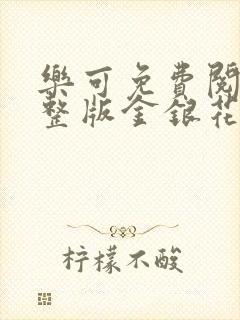 樂可免費閱
整版金銀花
柠檬不酸